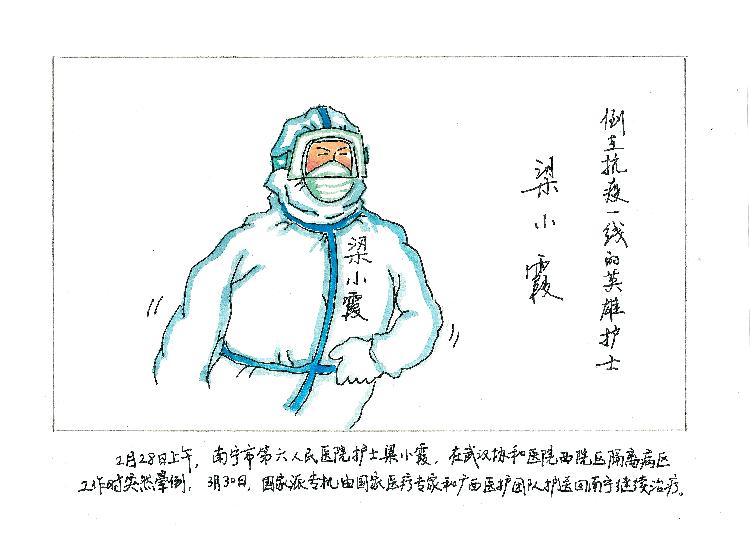 倒在抗疫一线的英雄护士
梁小霞
梁小霞
2月28日上午，南宁市第六人民医院护士梁小霞，在武汉协和医院西院区隔离病区
工作时突然晕倒，3月30日，国家派专机由国家医疗专家和广西医护团队护送回南宁继续治疗。